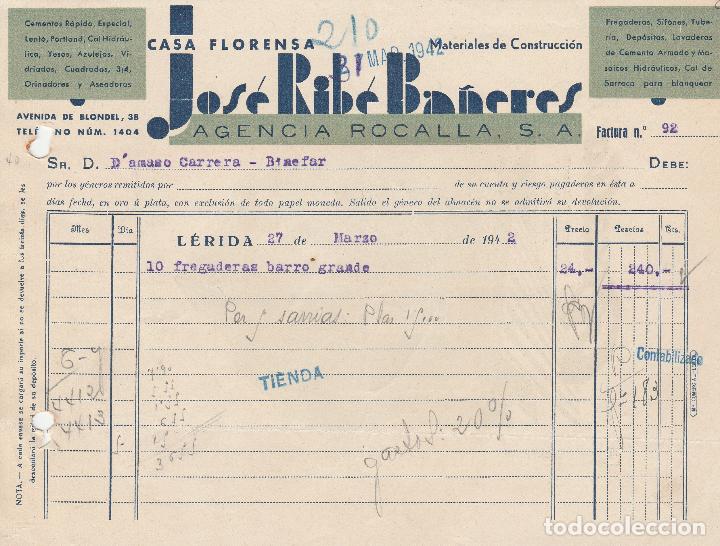 Cementos Rápido, Especial,
Lento, Portland, Cal Hidráu-
lica, Yesos, Azulejos, Vi-
driados, Cuadrados, 3/4,
Orinadores y Aseadoras
CASA FLORENSA
210
31 MAR 1942
Materiales de Construcción
Fregaderas, Sifones, Tube-
ría, Depósitos, Lavaderos
de Cemento Armado y Mo-
saicos Hidráulicos, Cal de
Sarroca para blanquear
José Ribé Bañeres
AGENCIA ROCALLA, S. A.
AVENIDA DE BLONDEL, 38
TELÉFONO NÚM. 1404
Factura n.º 92
40
SR. D. D'amaso Carrera - Binefar DEBE:
por los géneros remitidos por de su cuenta y riesgo pagaderos en ésta a
días fecha, en oro ú plata, con exclusión de todo papel moneda. Salido el género del almacén no se admitirá su devolución.
Mes Día LÉRIDA 27 de Marzo de 1942 Precio Pesetas Cts.
10 fregaderas barro grande 24,- 240,-
TIENDA
Contabilizado
gastos: 20%
NOTA.— A cada envase se cargará su importe si no se devuelve a los treinta días, se les
descontará la mitad de su depósito.
todocoleccion.net